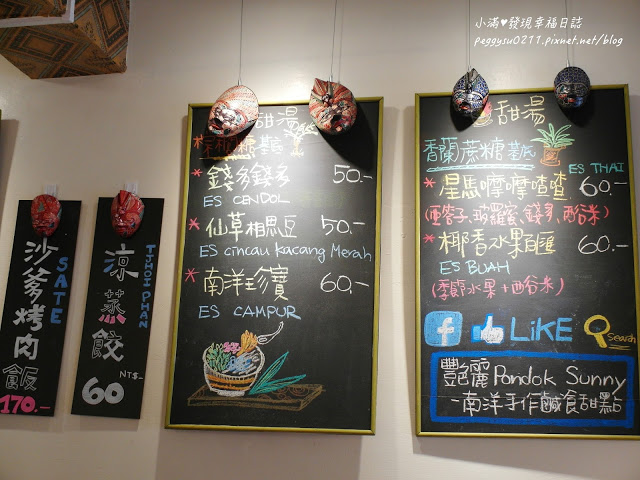 小滿♥發現幸福日誌
peggysu0211.pixnet.net/blog
沙爹烤肉飯
SATE
170.-
涼蒸餃
TJHOI PHAN
NT$-
60
甜湯
椰糖基底
*錢多錢多 50.-
ES CENDOL
*仙草相思豆 50.-
ES cincau kacang Merah
*南洋珍寶 60.-
ES CAMPUR
甜湯
香蘭蔗糖基底
ES THAI
*星馬摩摩喳喳 60.-
(亞答子、菠蘿蜜、錢多、西谷米)
*椰香水果百匯 60.-
ES BUAH
(季節水果+西谷米)
f LiKE Search
豔麗 Pondok Sunny
-南洋手作鹹食甜點